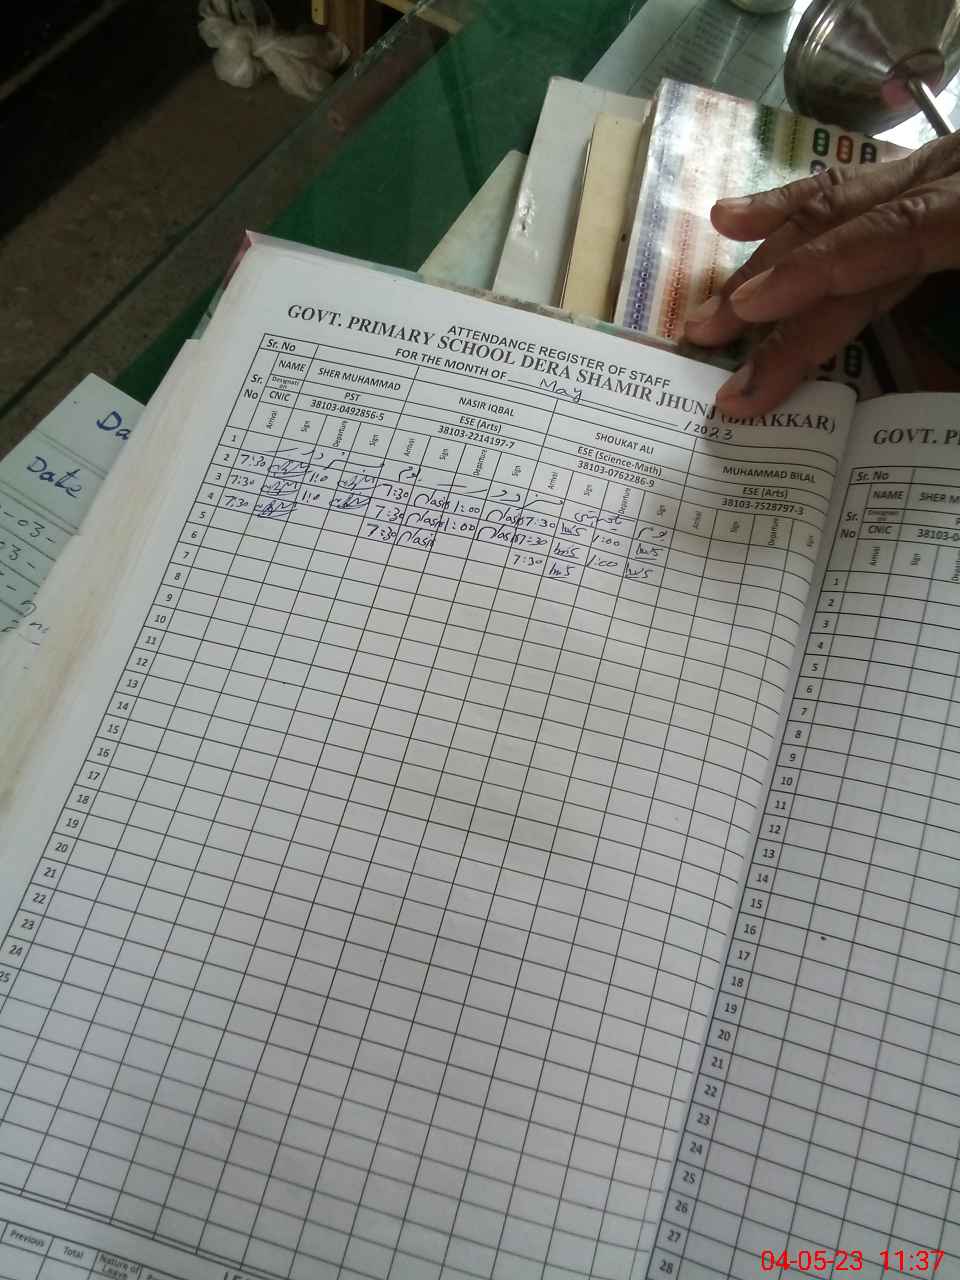 ATTENDANCE REGISTER OF STAFF
GOVT. PRIMARY SCHOOL DERA SHAMIR JHUNJ (BHAKKAR)
FOR THE MONTH OF May / 2023
Sr. No
Sr. No NAME SHER MUHAMMAD NASIR IQBAL SHOUKAT ALI MUHAMMAD BILAL
Designation PST ESE (Arts) ESE (Science-Math) ESE (Arts)
CNIC 38103-0492856-5 38103-2214197-7 38103-0762286-9 38103-7528797-3
Arrival Sign Departure Sign Arrival Sign Departure Sign Arrival Sign Departure Sign Arrival Sign Departure Sign
1
2 7:30 1:0 7:30 Nasir 1:00 Nasir 7:30 1:00
3 7:30 1:0 7:30 Nasir 1:00 Nasir 7:30 1:00
4 7:30 7:30 Nasir 7:30 1:00
5
6
7
8
9
10
11
12
13
14
15
16
17
18
19
20
21
22
23
24
25
Previous Total Nature of Leave
GOVT. P
Sr. No
Sr. No NAME SHER M
CNIC 38103-0
Arrival Sign
1
2
3
4
5
6
7
8
9
10
11
12
13
14
15
16
17
18
19
20
21
22
23
24
25
26
27
28
Da
Date
04-05-23 11:37